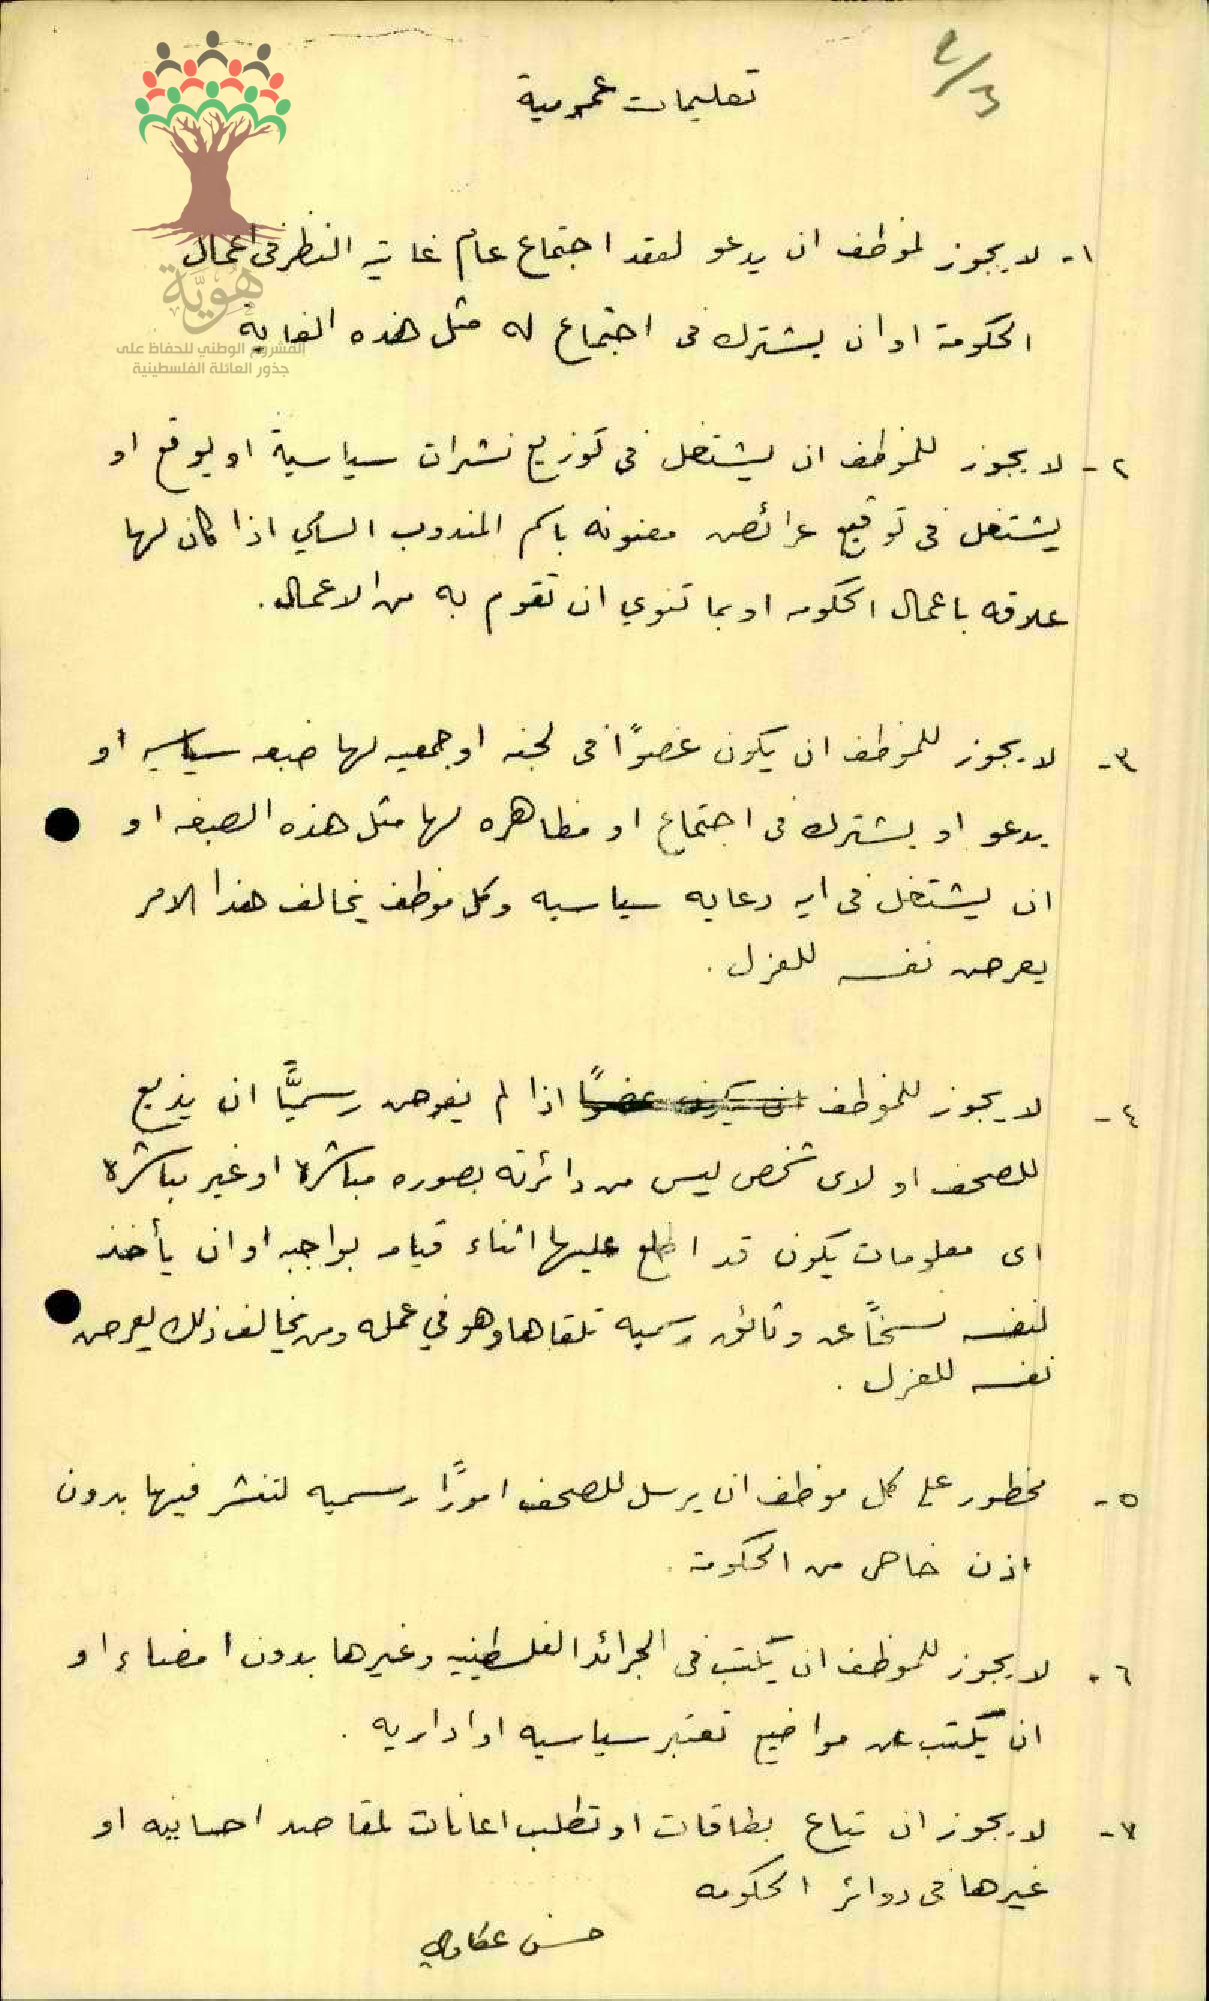 ٢/٣
تعليمات عمومية
١- لا يجوز لموظف ان يدعو لعقد اجتماع عام غايته النظر في اعمال
الحكومة او ان يشترك في اجتماع له مثل هذه الغاية
هويّة
المشروع الوطني للحفاظ على
جذور العائلة الفلسطينية
٢- لا يجوز للموظف ان يشتغل في توزيع نشرات سياسية او يوقع او
يشتغل في توقيع عرائض معنونه باسم المندوب السامي اذا كان لها
علاقه باعمال الحكومه او بما تنوي ان تقوم به من الاعمال.
٣- لا يجوز للموظف ان يكون عضوًا في لجنه او جمعيه لها صبغه سياسيه او
يدعو او يشترك في اجتماع او مظاهره لها مثل هذه الصبغه او
ان يشتغل في ايه دعايه سياسيه وكل موظف يخالف هذا الامر
يعرض نفسه للعزل.
٤- لا يجوز للموظف ان يكون عضوًا اذا لم يفوض رسميًّا ان يذيع
للصحف او لاى شخص ليس من دائرته بصوره مباشرة او غير مباشرة
اى معلومات يكون قد اطلع عليها اثناء قيامه بواجبه او ان يأخذ
لنفسه نسخًا عن وثائق رسميه تلقاها وهو في عمله ومن يخالف ذلك يعرض
نفسه للعزل.
٥- محظور على كل موظف ان يرسل للصحف امورًا رسميه لتنشر فيها بدون
اذن خاص من الحكومة.
٦- لا يجوز للموظف ان يكتب في الجرائد الفلسطينيه وغيرها بدون امضاء او
ان يكتب عن مواضيع تعتبر سياسيه او اداريه.
٧- لا يجوز ان تباع بطاقات او تطلب اعانات لمقاصد احسانيه او
غيرها في دوائر الحكومه
حسن